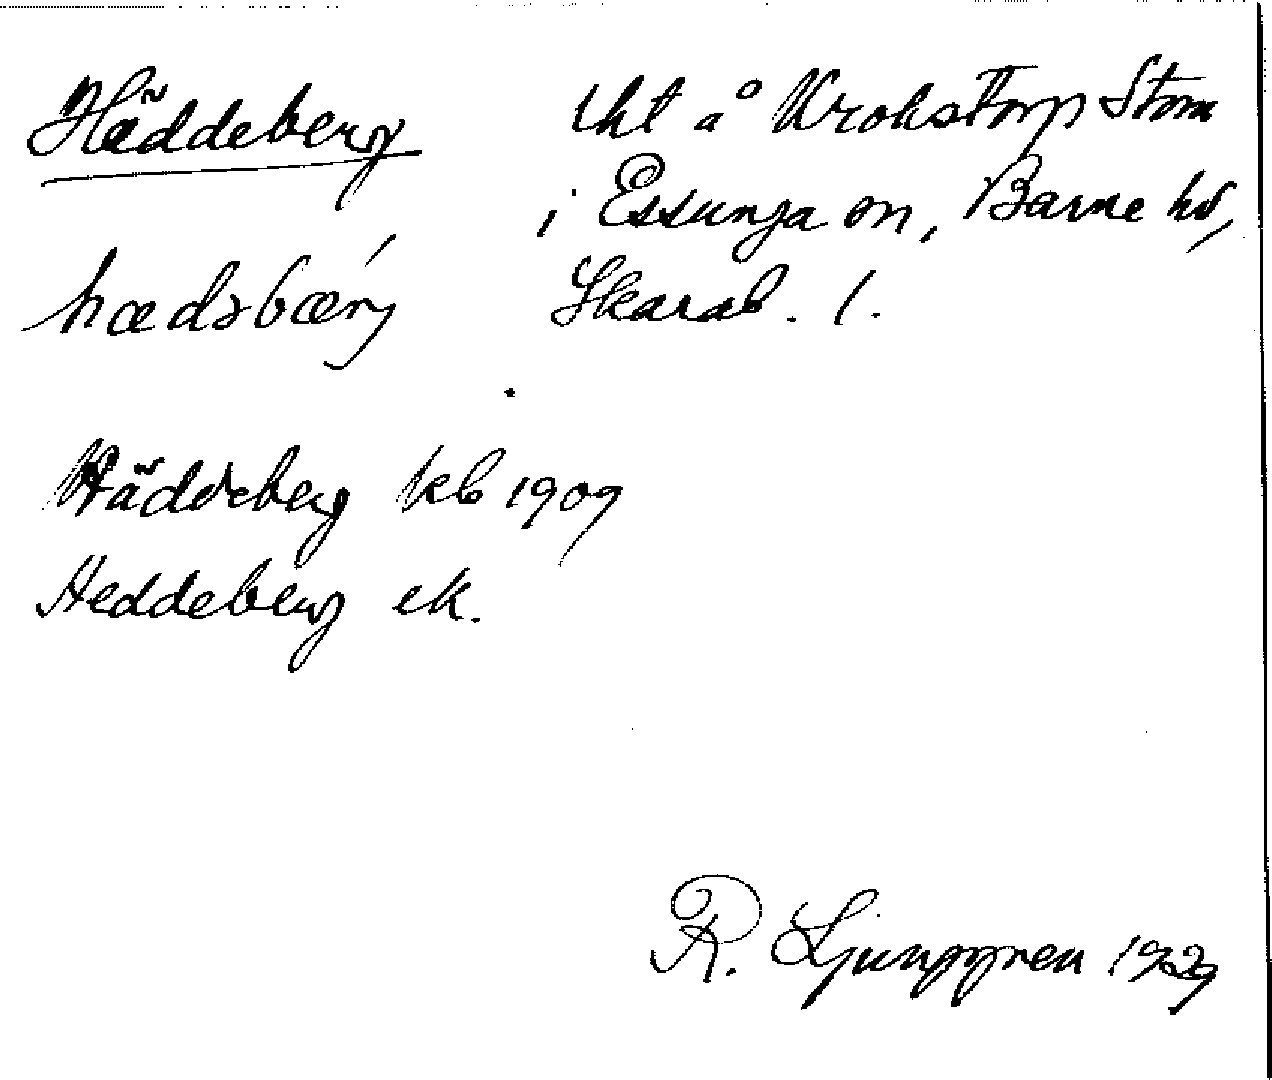 Häddeberg
tht å Krokstorp Stom
i Essunga sn, Barne hd,
Skarab. l.
hædsbærj
Häddeberg kb 1909
Heddeberg ek.
R. Ljunggren 1923